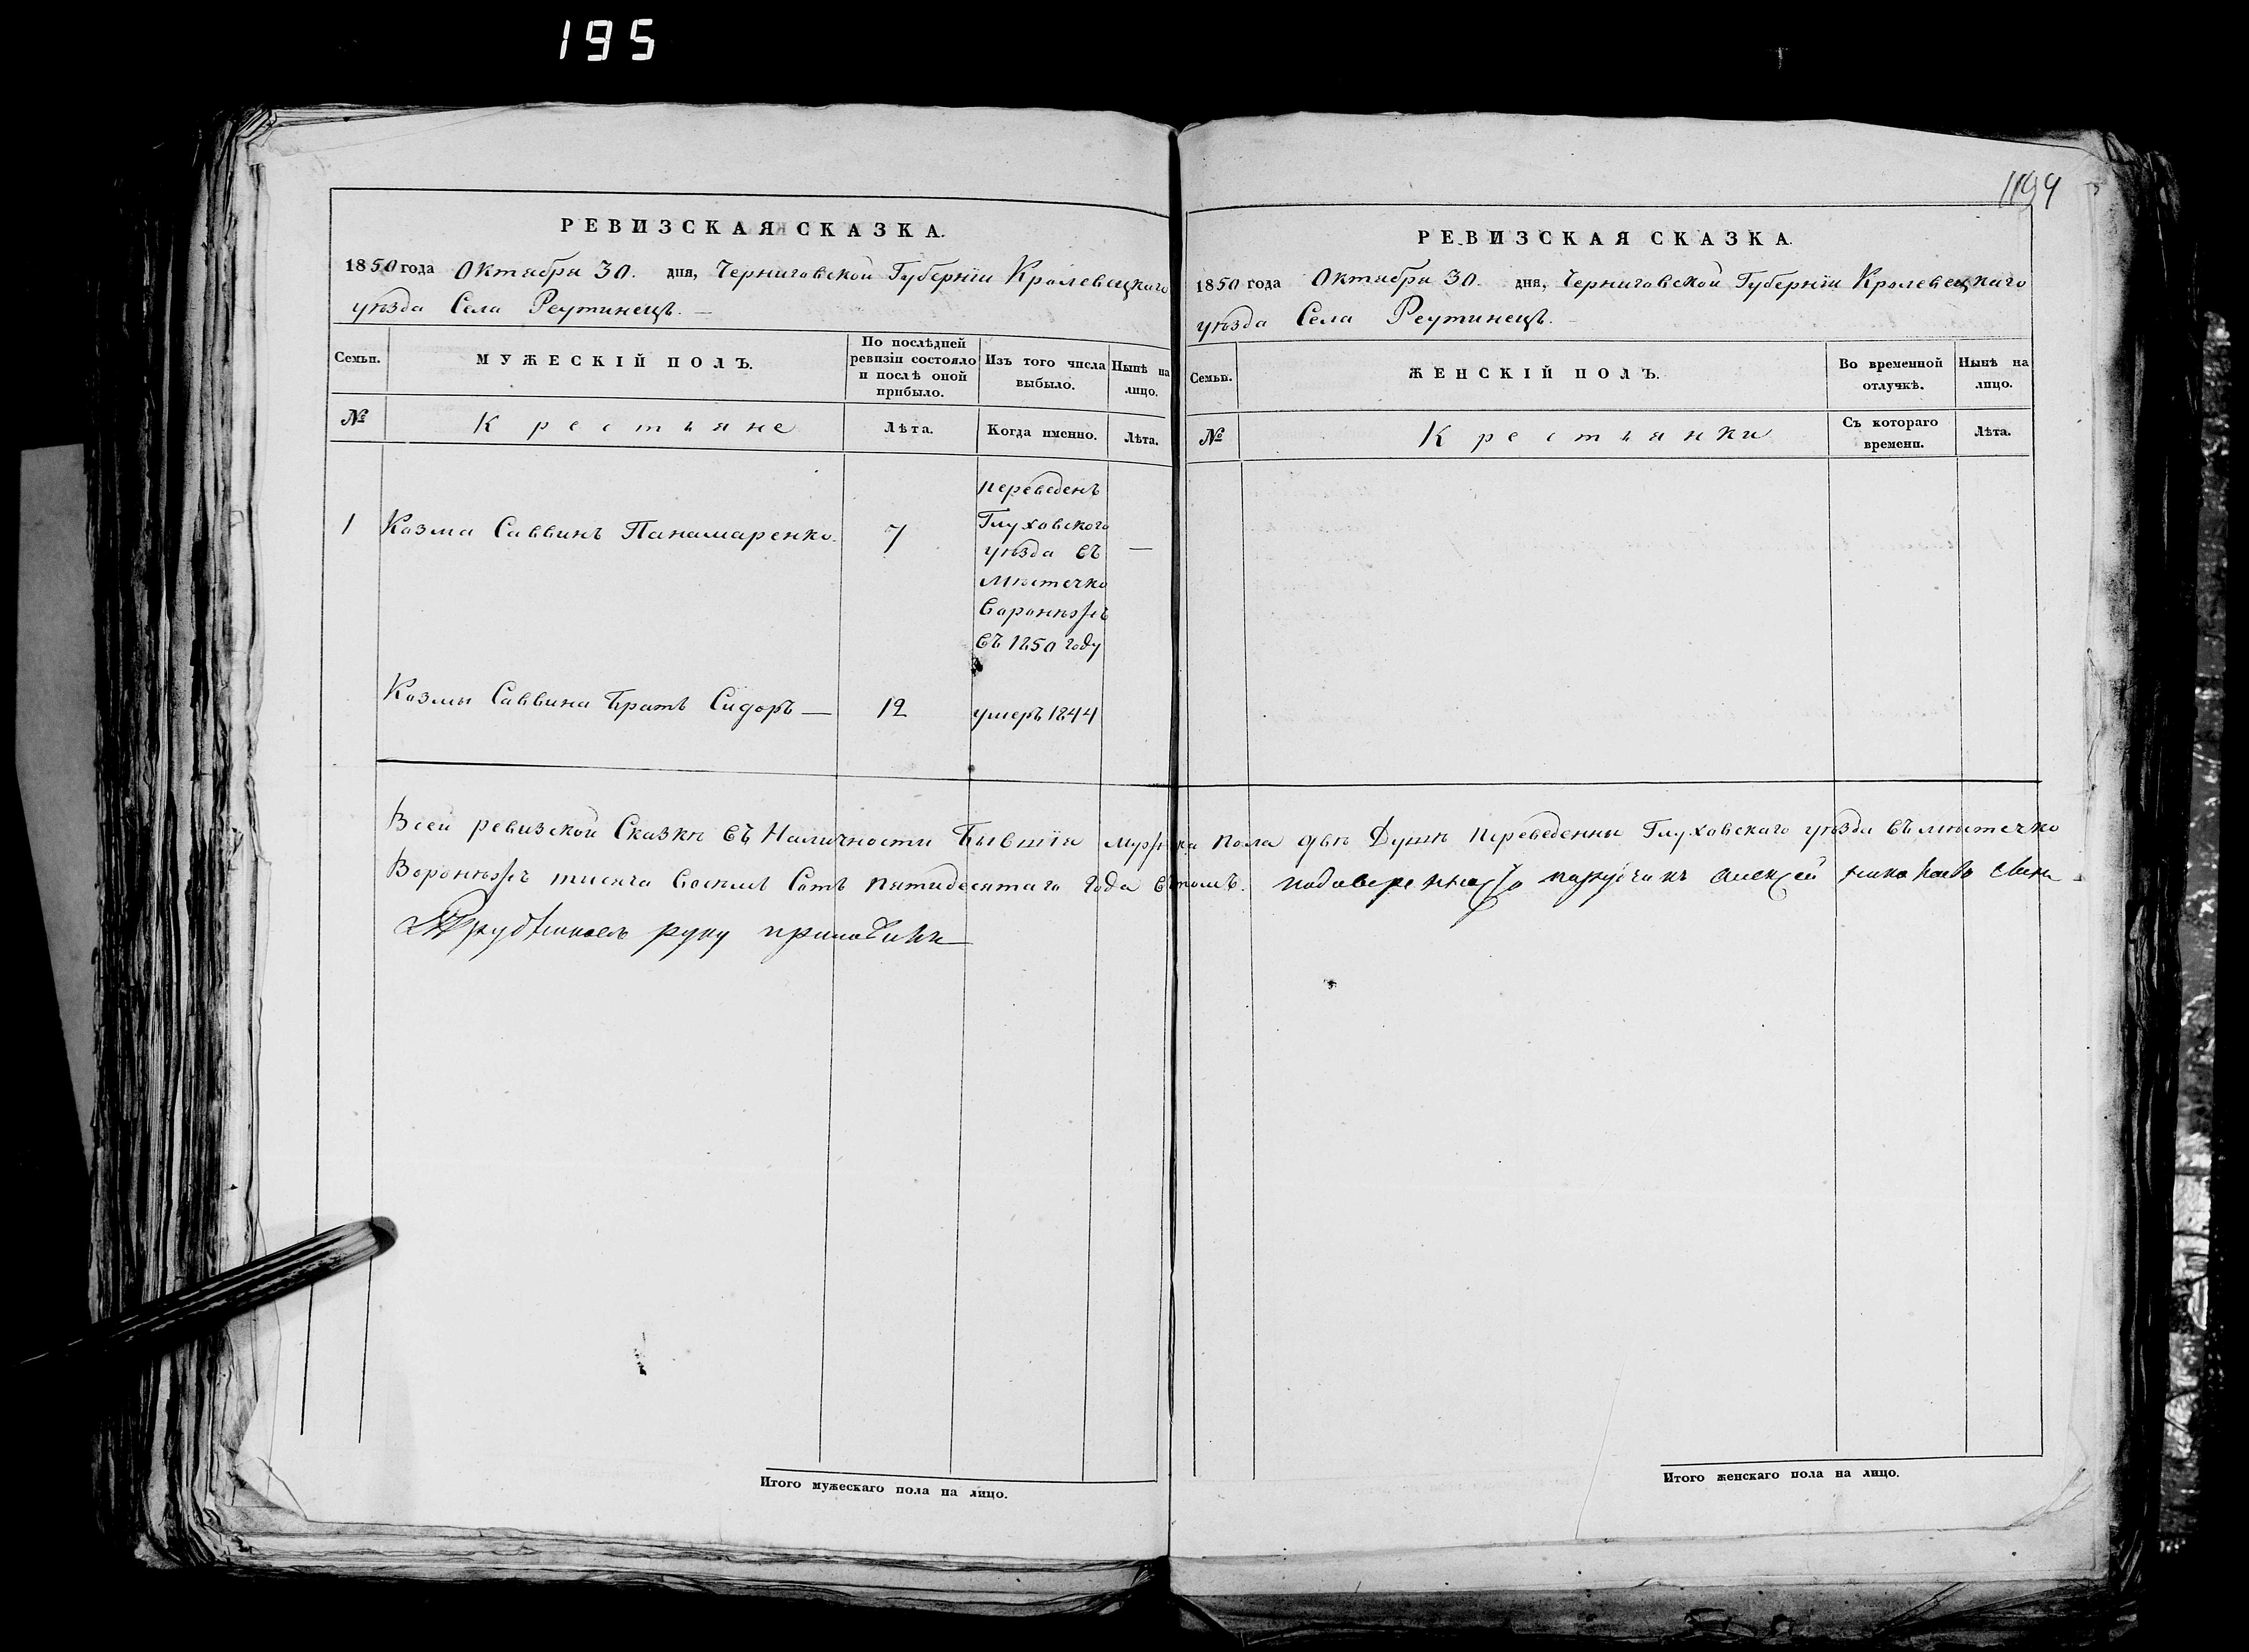 195
1194
РЕВИЗСКАЯ СКАЗКА.
1850 года Октября 30. дня, Черниговской Губерніи Кролевецкаго
уѣзда Села Реутинецъ. —
Семьи.
МУЖЕСКІЙ ПОЛЪ.
По послѣдней
ревизіи состояло
и послѣ оной
прибыло.
Изъ того числа
выбыло.
Нынѣ на
лицо.
№
Крестьяне
Лѣта.
Когда именно.
Лѣта.
1 Козма Саввинъ Панамаренко. 7
переведенъ
Глуховского
уѣзда въ
мѣстечко
Воронѣжъ
въ 1850 году
—
Козмы Саввина братъ Сидоръ — 12 умеръ 1844
РЕВИЗСКАЯ СКАЗКА.
1850 года Октября 30. дня, Черниговской Губерніи Кролевецкаго
уѣзда Села Реутинецъ. —
Семьи.
ЖЕНСКІЙ ПОЛЪ.
Во временной
отлучкѣ.
Нынѣ на
лицо.
№
Крестьянки
Съ котораго
времени.
Лѣта.
Всей ревизской Сказкѣ въ Наличности бывшія мужска пола двѣ Душѣ переведенны Глуховскаго уѣзда въ мѣстечко
Воронѣжъ тисяча восемь сотъ пятидесятаго года въ томъ. поручикъ алексей
руку приложилъ
Итого мужескаго пола на лицо.
Итого женскаго пола на лицо.